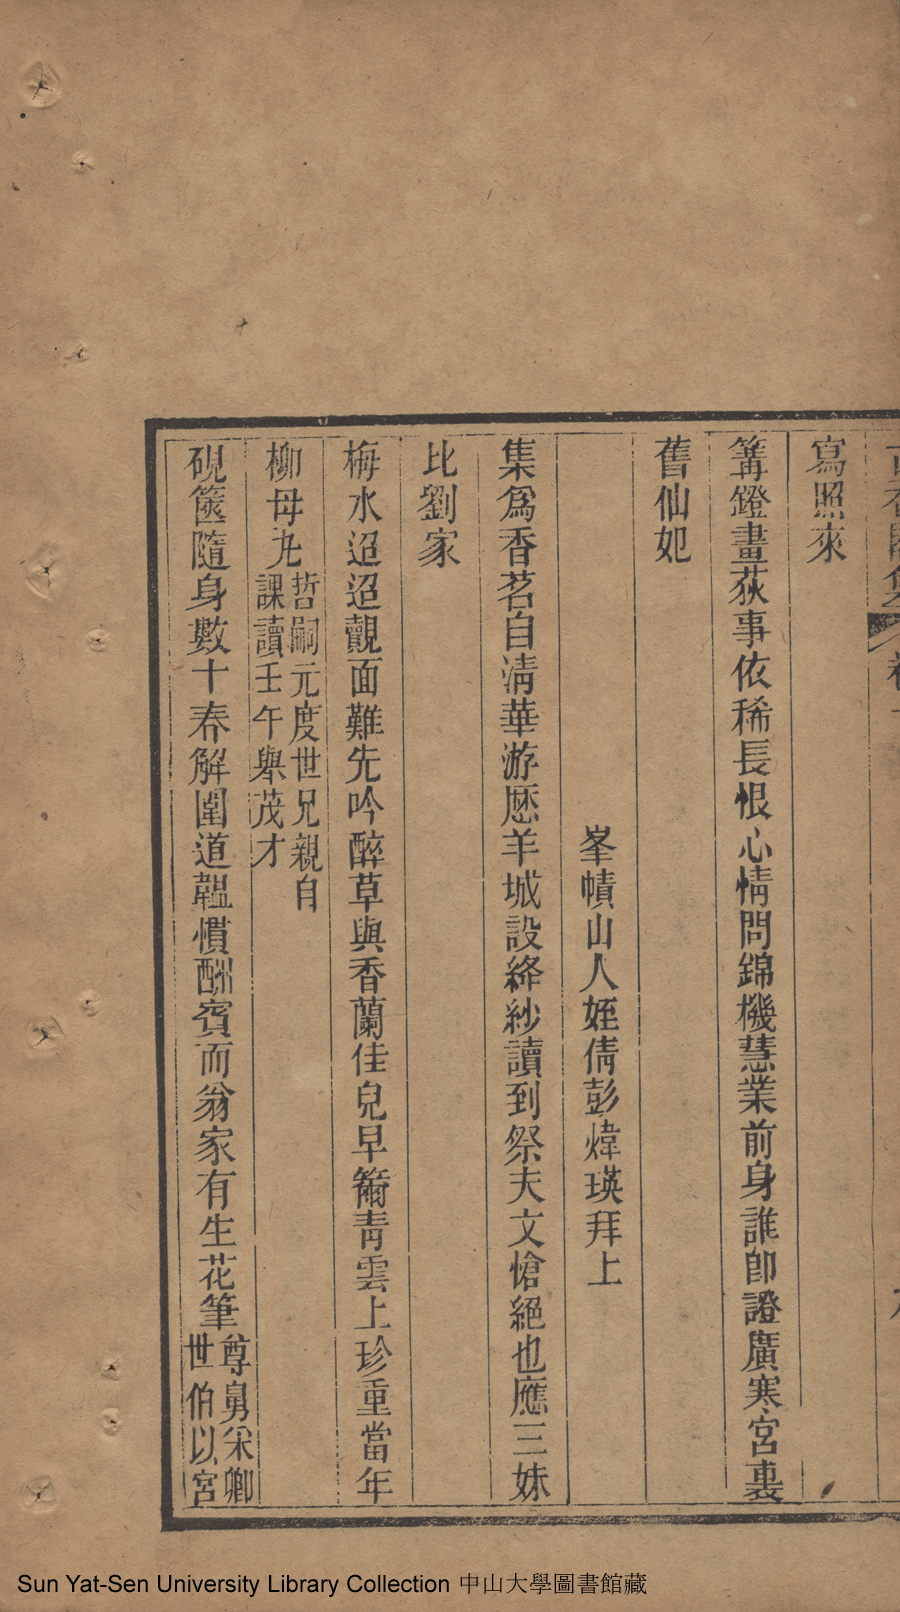 寫照來
篝鐙畫荻事依稀長恨心情問錦機慧業前身誰卽證廣寒宮裏
舊仙妃
峯幘山人姪倩彭煒瑛拜上
集爲香茗自淸華游歷羊城設絳紗讀到祭夫文愴絕也應三妹
比劉家
梅水迢迢覿面難先吟醉草與香蘭佳兒早籋靑雲上珍重當年
柳母丸哲嗣元度世兄親自課讀壬午舉茂才
硯篋隨身數十春解圍道韞慣酬賓而翁家有生花筆尊舅宋卿世伯以宮
Sun Yat-Sen University Library Collection 中山大學圖書館藏